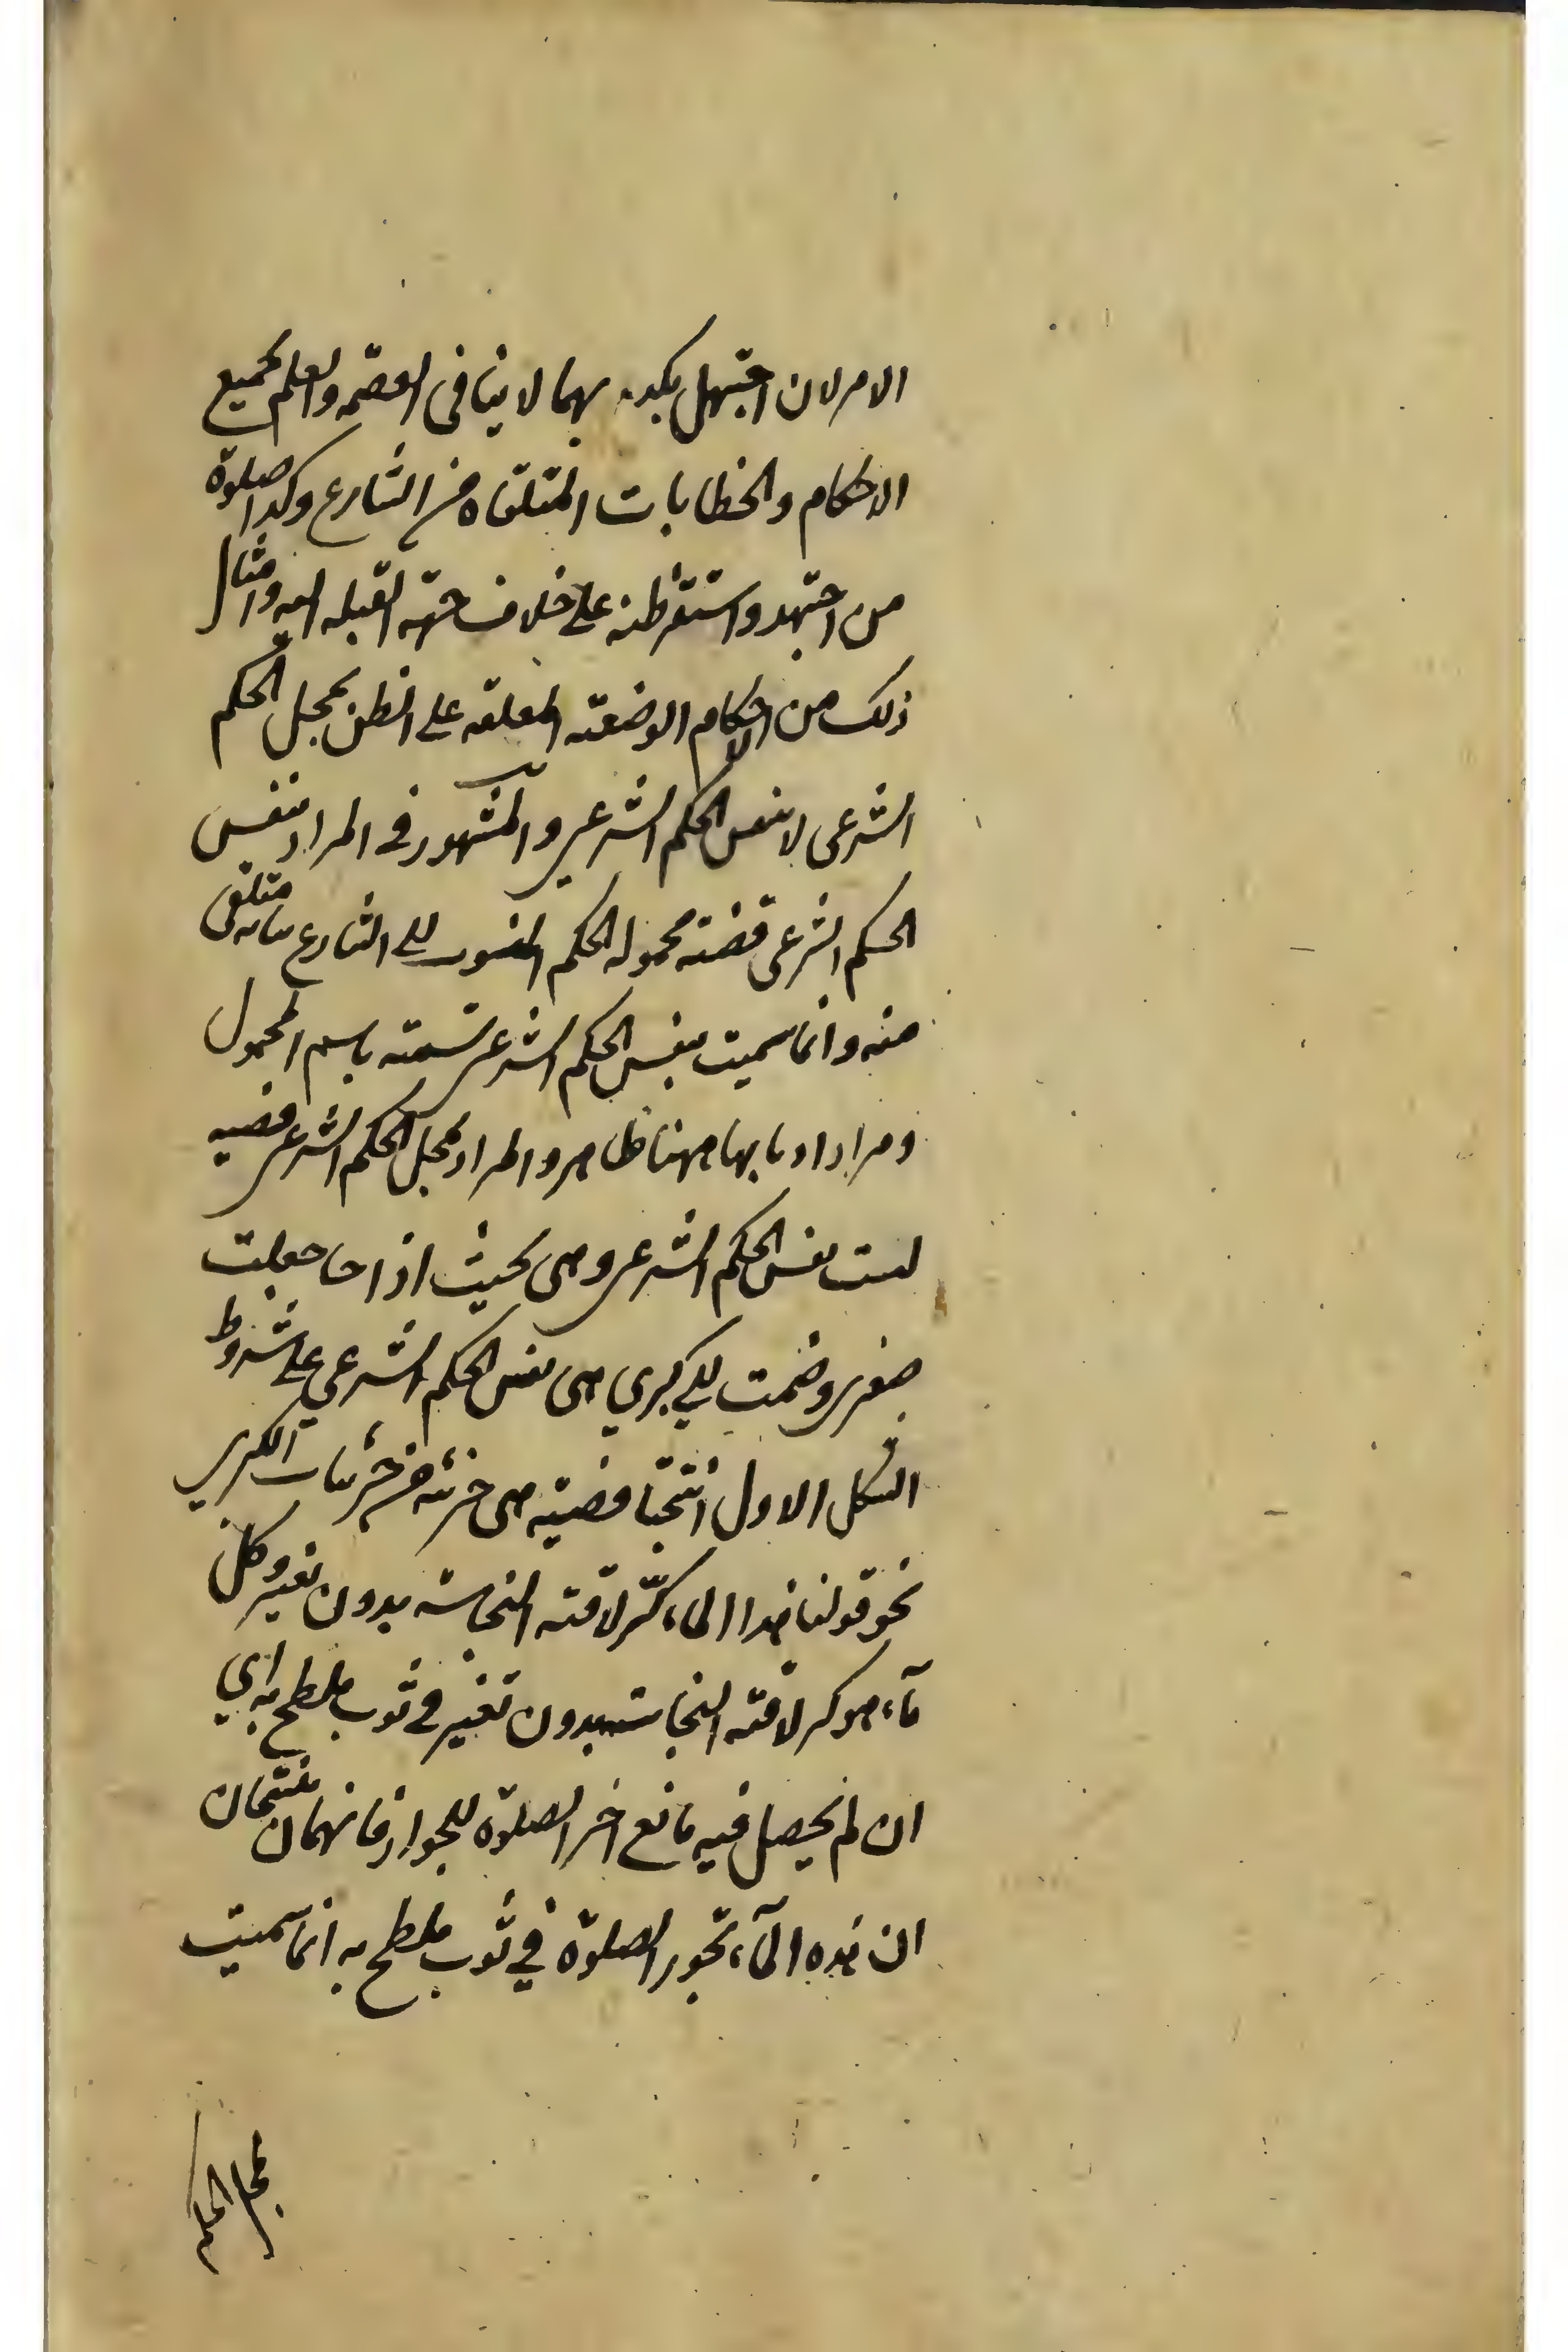 الامر لان الجهل بكد بهما لا ينافى العصمه والعلم بجميع
الاحكام والخطابات المتلقاه من الشارع وكذا صلوة
من اجتهد واستقر ظنه على خلاف جهة القبله اليه وامثال
ذلك من الاحكام الوضعيه المعلقه على الظن بمحل الحكم
الشرعى لا بنفس الحكم الشرعي والمشهور فى المراد بنفس
الحكم الشرعى قضيته محموله الحكم المنسوب الى الشارع بيانه متلقى
منه وانما سميت بنفس الحكم الشرعى تسميته باسم المحمول
ومراد اربابها ههنا ظاهر والمراد بمحل الحكم الشرعى قضيه
ليست نفس الحكم الشرعى وهى بحيث اذا جعلت
صغرى وضمت الى كبرى هى نفس الحكم الشرعي على شروط
الشكل الاول انتجتا قضيته هى جزئيه من جزئيات الكبرى
نحو قولنا هذا الماء كر لاقته النجاسه بدون تغير وكل
مآء هو كر لاقته النجاسته بدون تغير فى ثوب ملطخ به اي
ان لم يحصل فيه مانع اخر الصلوة للجواز فانهما ان منتجتان
ان هذه المآء تجوز الصلوة في ثوب ملطخ به انما سميت
بمحل الحكم